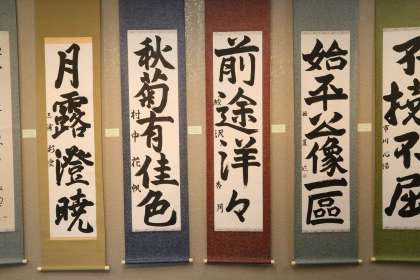 不撓不屈
市川
始平公像一區
前途洋々
秋菊有佳色
村中花帆
月露澄暁
三浦彩